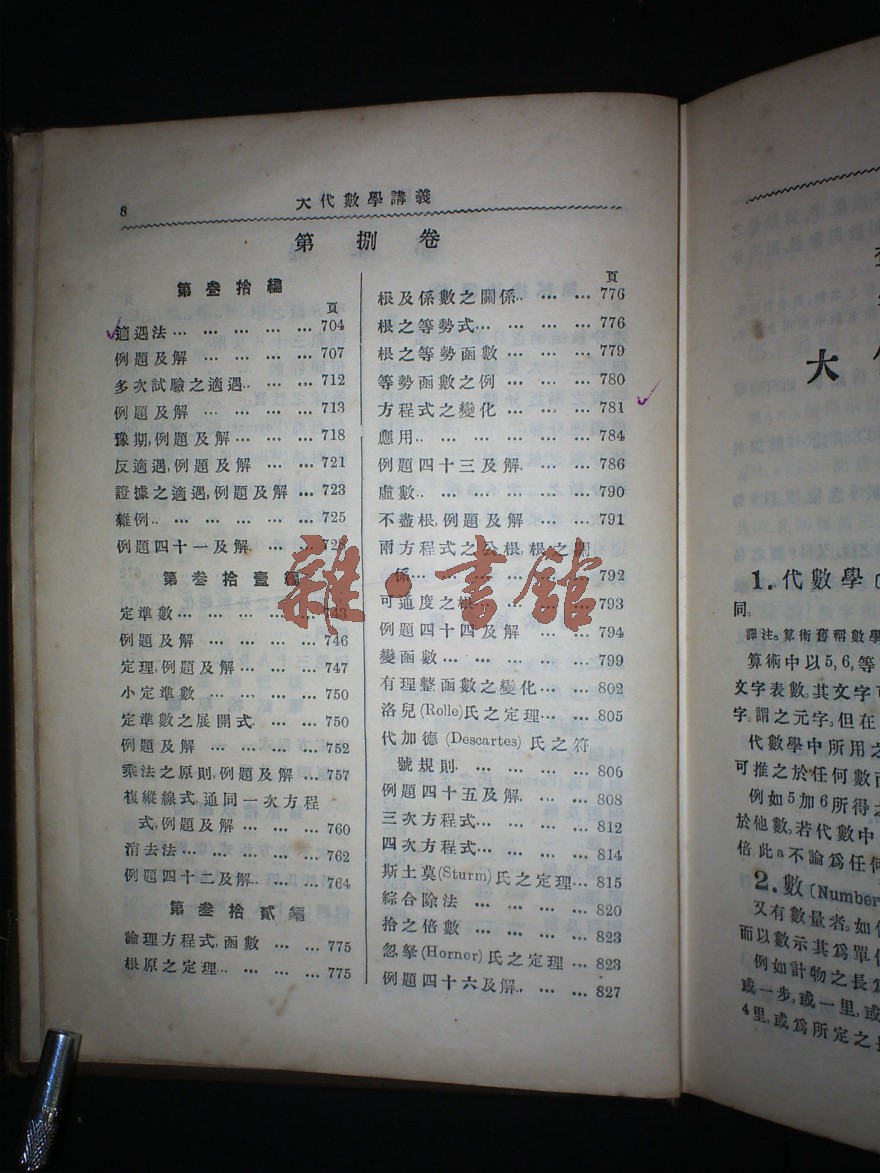 8
大代數學講義
第捌卷
第叁拾編
頁
適遇法… … … … … 704
例題及解 … … … … 707
多次試驗之適遇.. … … 712
例題及解 … … … … 713
豫期,例題及解… … … 718
反適遇,例題及解 … … 721
證據之適遇,例題及解 … 723
雜例.. … … … … … 725
例題四十一及解.. … … 728
第叁拾壹編
定準數… … … … … 743
例題及解 … … … … 746
定理,例題及解… … … 747
小定準數 … … … … 750
定準數之展開式 … … 750
例題及解 … … … … 752
乘法之原則,例題及解 … 757
複縱線式,通同一次方程
式,例題及解… … … 760
消去法… … … … … 762
例題四十二及解.. … … 764
第叁拾貳編
論理方程式,函數 … … 775
根原之定理.. … … … 775
頁
根及係數之關係.. … … 776
根之等勢式… … … … 776
根之等勢函數… … … 779
等勢函數之例… … … 780
方程式之變化… … … 781
應用.. … … … … … 784
例題四十三及解.. … … 786
虛數.. … … … … … 790
不盡根,例題及解 … … 791
兩方程式之公根,根之關
係… … … … … … 792
可通度之根… … … … 793
例題四十四及解 … … 794
變函數… … … … … 799
有理整函數之變化… … 802
洛兒(Rolle)氏之定理… … 805
代加德(Descartes)氏之符
號規則… … … … … 806
例題四十五及解.. … … 808
三次方程式… … … … 812
四次方程式… … … … 814
斯土莫(Sturm)氏之定理… 815
綜合除法 … … … … 820
拾之倍數 … … … … 823
忽拏(Horner)氏之定理 … 823
例題四十六及解.. … … 827
大
1.代數學
同。
譯注。算術舊稱數學
算術中以5,6,等
文字表數,其文字可
字,謂之元字,但在
代數學中所用之
可推之於任何數而
例如5加6所得之
於他數,若代數中
倍,此a不論爲任何
2.數(Number
又有數量者。如
而以數示其爲單位
例如計物之長爲
或一步,或一里,或
4里,或爲所定之長
雜·書館